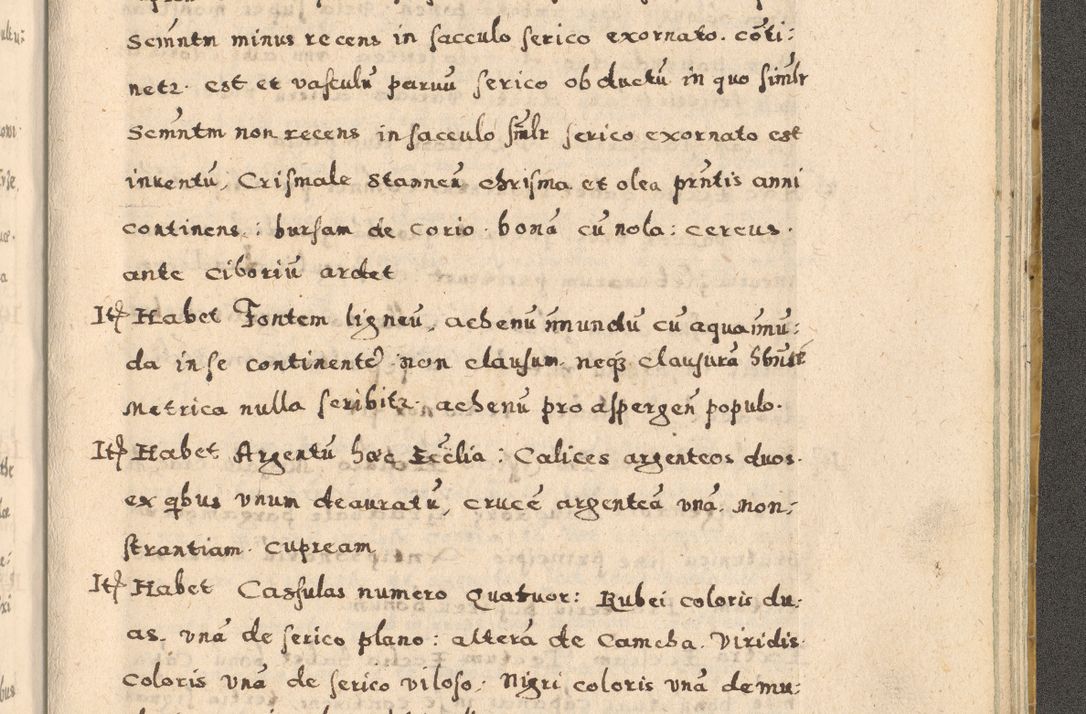 Scm̃ntm minus recens in sacculo serico exornato. cõti:
netz. est et vasculũ paruũ serico obductũ in quo simlr
Scm̃ntm non recens in sacculo sm̃lr serico exornato est
inventũ, Crismale stanneũ chrisma et olea prñtis anni
continens: bursam de corio. bonã cũ nola: cereus.
ante ciboriũ ardet
Itp̃ Habet Fontem ligneũ, achenũ mundũ cũ aqua mũ:
da in se continentẽ non clausum neqз clausurã
Metrica nulla scribitz. achenũ pro aspergeñ populo.
Itp̃ Habet Argentũ hæc Eccľia: Calices argenteos duos.
ex qbus vnum deauratũ, crucẽ argenteã vnã. Mon:
strantiam cupream
Itp̃ Habet Cassulas numero quatuor: Rubei coloris du:
as. vnã de serico plano: alterã de Camcha. Viridis
coloris vnã de serico viloso. Nigri coloris vnã de mu: